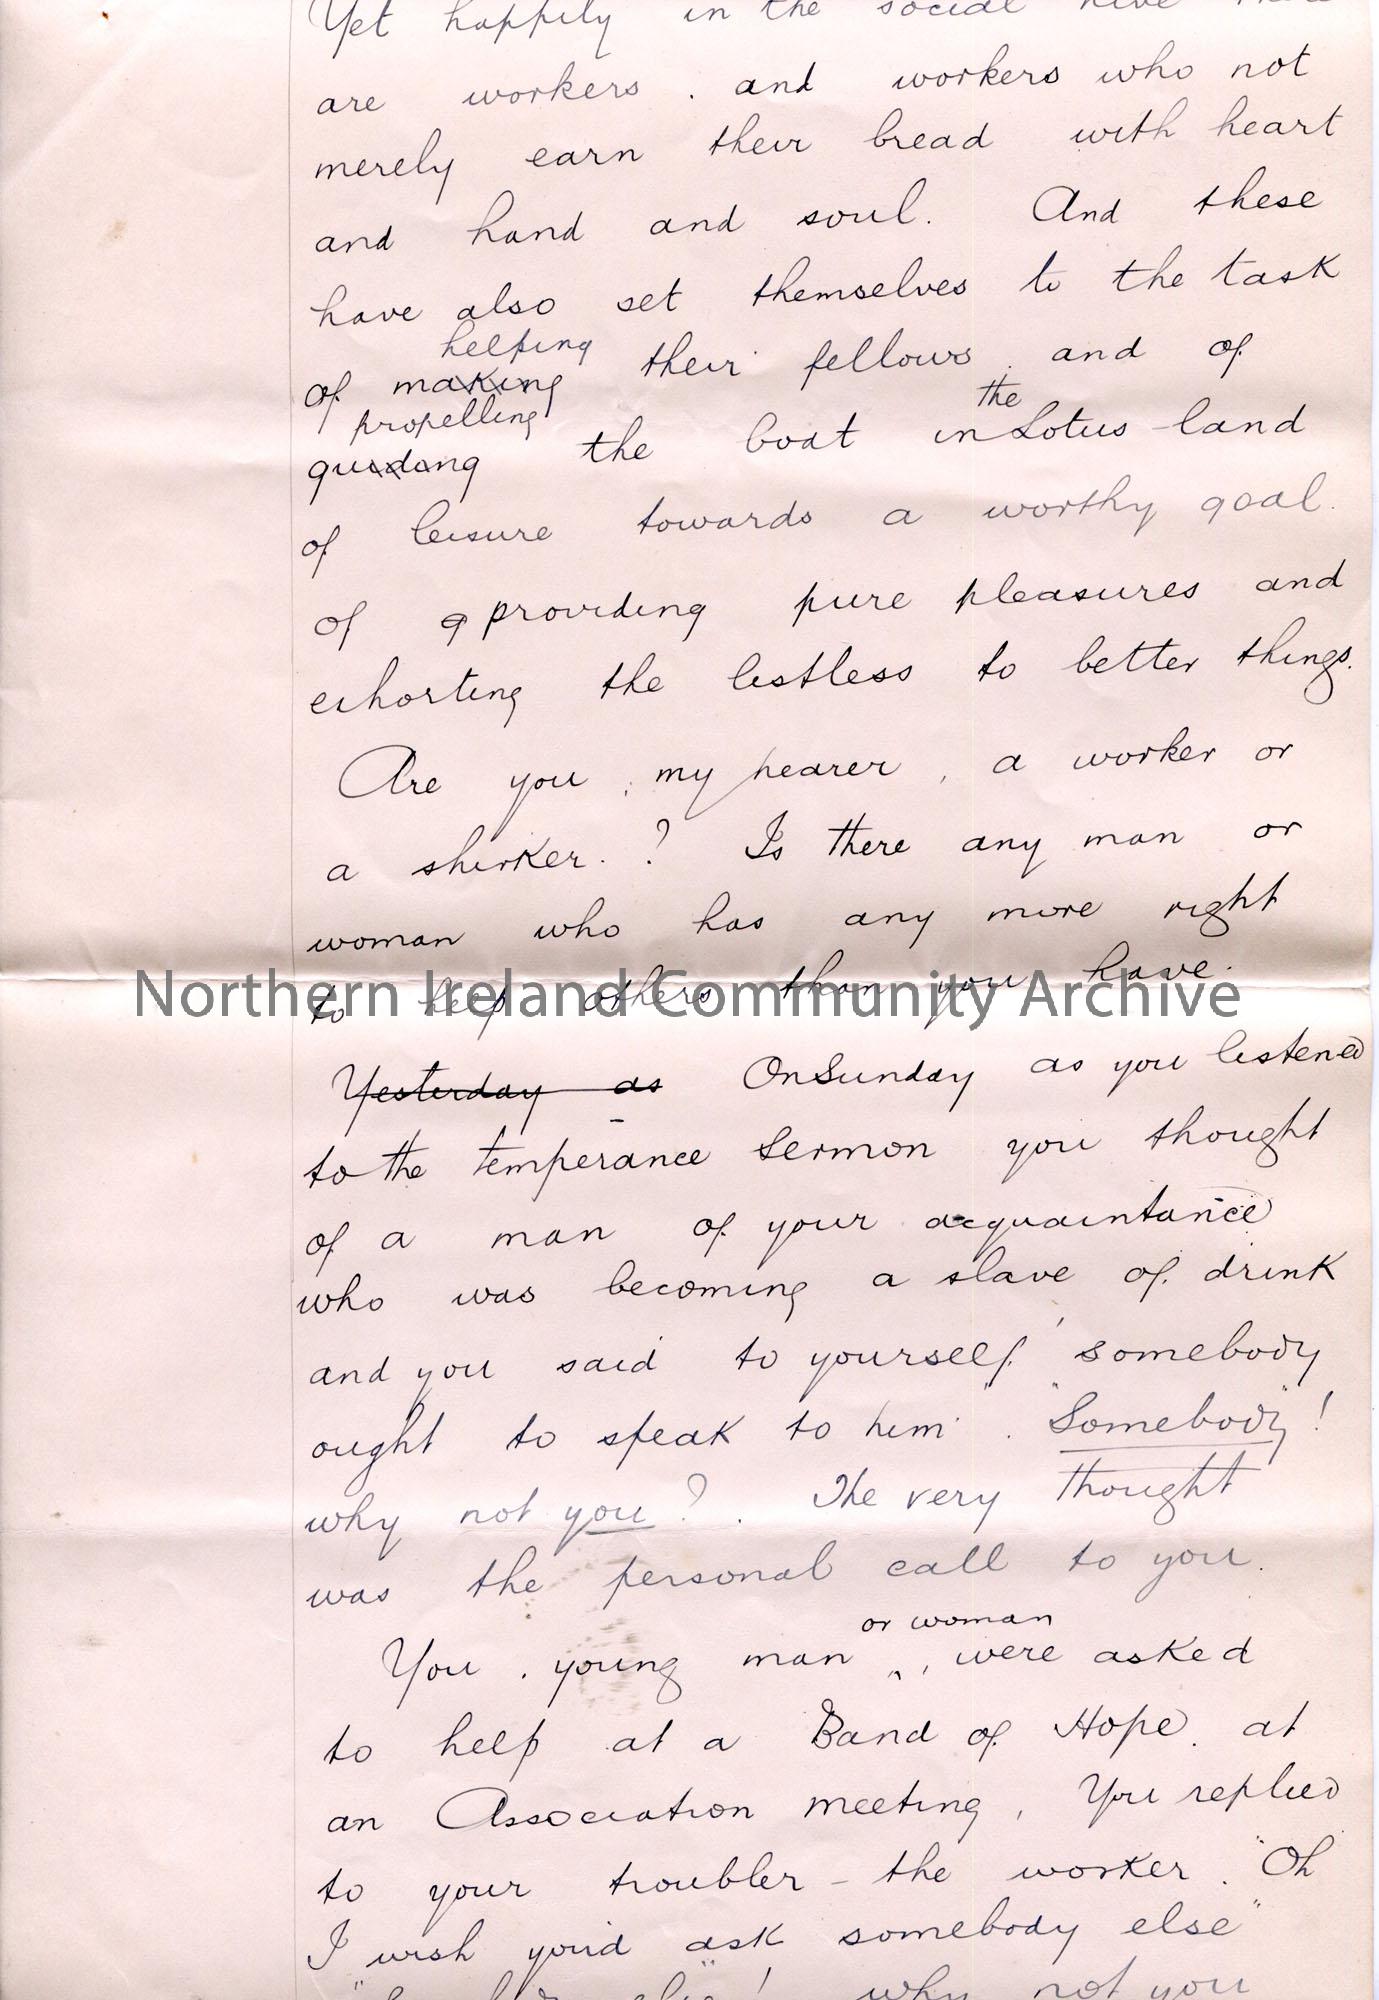 Yet happily in the social hive there
are workers. and workers who not
merely earn their bread with heart
and hand and soul. And these
have also set themselves to the task
helping
of making their fellows. and of
propelling the
guiding the boat in Lotus-land
of leisure towards a worthy goal.
of providing pure pleasures and
exhorting the listless to better things.
Are you, my hearer, a worker or
a shirker.? Is there any man or
woman who has any more right
to help others than you have.
Northern Ireland Community Archive
Yesterday as On Sunday as you listened
to the temperance sermon you thought
of a man of your acquaintance
who was becoming a slave of drink
and you said to yourself 'somebody
ought to speak to him'. "Somebody"!
why not you?. The very thought
was the personal call to you.
or woman
You, young man, were asked
to help at a Band of Hope. at
an Association meeting, You replied
to your troubler - the worker. "Oh
I wish you'd ask somebody else"
! why not you